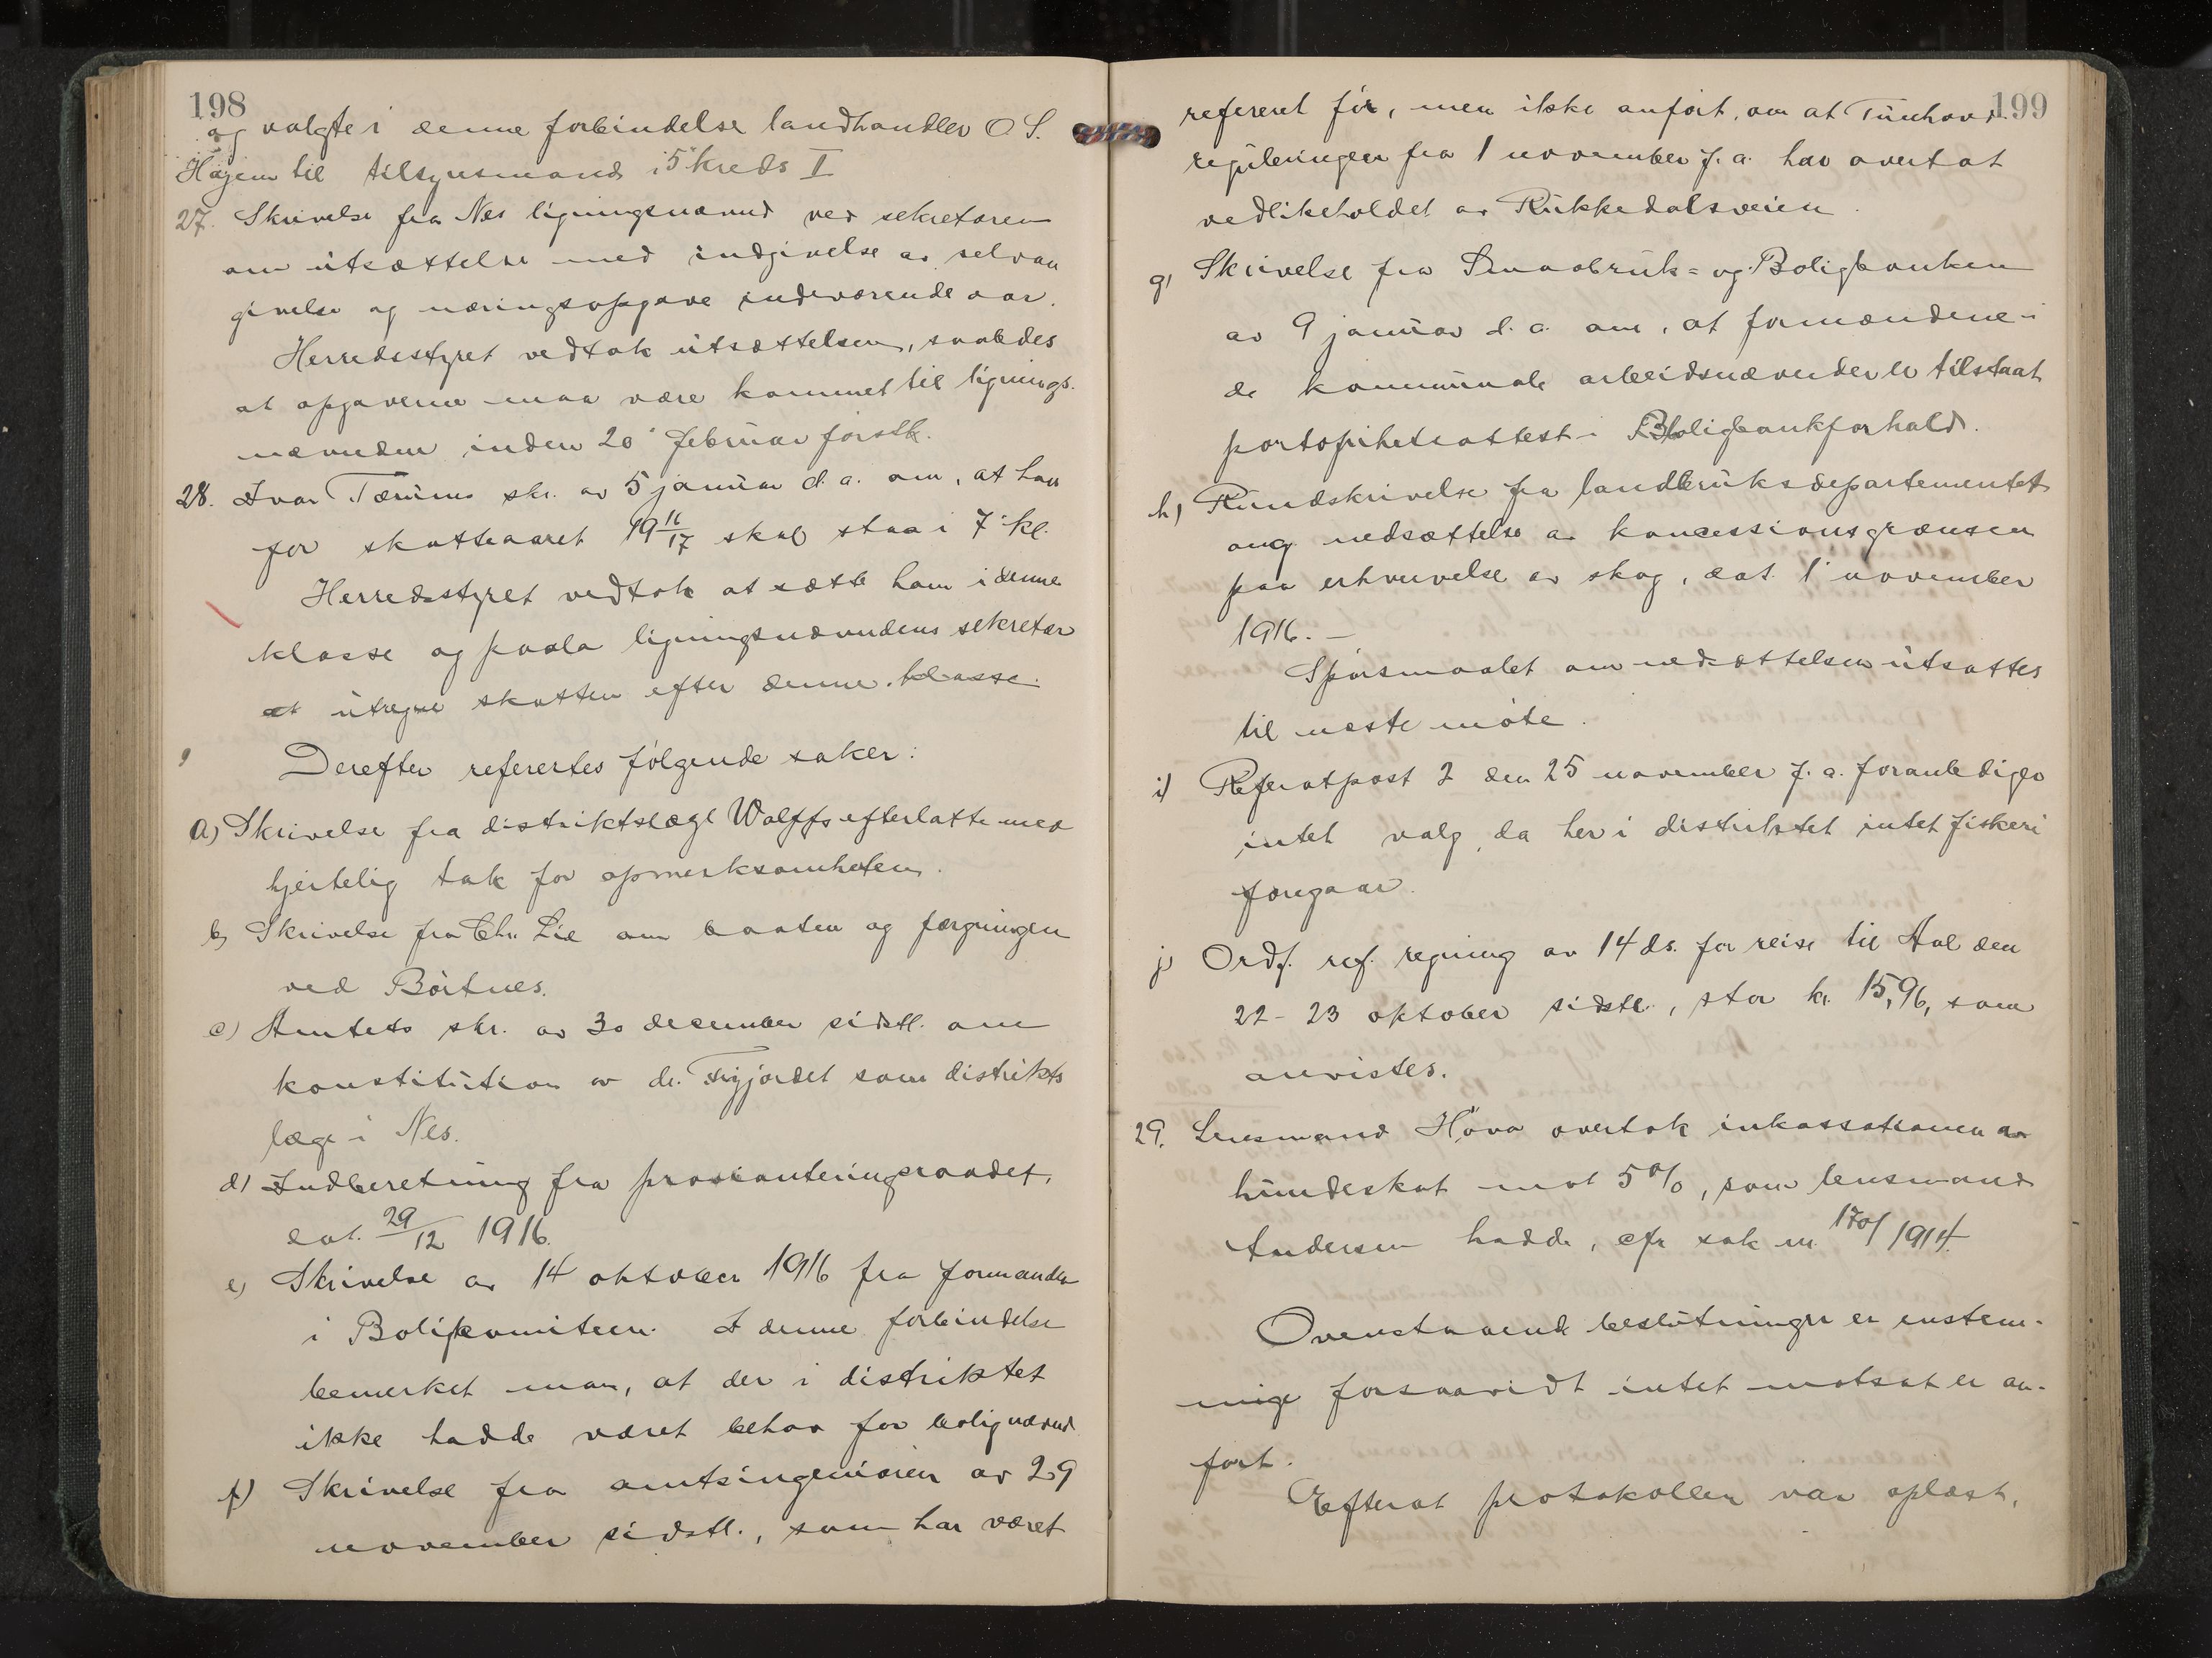 198
og valgte i denne forbindelse landhandler O S.
Hagen til tilsynsmand i 5 kreds II
27. Skrivelse fra Nes ligningsnævnd ved sekretæren
om utsættelse med indgivelse av selvan
givelse og næringsopgave indeværende aar.
Herredsstyret vedtok utsættelsen, saaledes
at opgaverne maa være kommet til lignings-
nævnden inden 20 februar førstk.
28. Ivar Tærums skr. av 5 januar d. a. om, at han
for skatteaaret 19 16/17 skal staa i 7 kl.
Herredsstyret vedtok at sætte ham i denne
klasse og paala ligningsnævndens sekretær
at utregne skatten efter denne klasse.
Derefter refertes følgende saker:
a) Skrivelse fra distriktslæge Wolffs efterlatte med
hjertelig tak for opmerksomheten.
b) Skrivelse fra Chr. Lie om baaten og færgningen
ved Børtnes.
c) Amtets skr. av 30 december sidstl. om
konstitution av dr. Frigjordet som distrikts
læge i Nes.
d) Indberetning fra provianteringsraadet,
dat. 29/12 1916.
e) Skrivelse av 14 oktober 1916 fra formanden
i Boligkomiteen. I denne forbindelse
bemerket man, at der i distriktet
ikke hadde været behov for bolignævnd
f) Skrivelse fra amtsingeniøren av 29
november sidstl., som har været
199
referert før, men ikke anført, om at Tunhovd
reguleringen fra 1 november f. a. har overtat
vedlikeholdet av Rukkedalsveien.
g) Skrivelse fra Smaabruk- og Boligbanken
av 9 januar d. a. om, at formændene i
de kommunale arbeidsnævnder er tilstaat
portofrihetsattest i Boligbankforhold.
h) Rundskrivelse fra landbruksdepartementet
ang. nedsættelse av koncessionsgrænsen
paa erhvervelse av skog, dat. 1 november
1916. –
Spørsmaalet om nedsættelsen utsattes
til næste møte.
i) Referatpost 2 den 25 november f. a. foranlediger
intet valg, da her i distriktet intet fiskeri
foregaar.
j) Ordf. ref. regning av 14 ds. for reise til Aal den
22 - 23 oktober sidstl., stor kr. 15,96, som
anvistes.
29. Lensmand Hova overtok inkassationen av
hundeskat mot 5 %, som lensmand
Andersen hadde, cfr sak nr. 170/1914.
Ovenstaaende beslutninger er enstem-
mige forsaavidt intet motsat er an-
ført.
Efterat protokollen var oplæst,